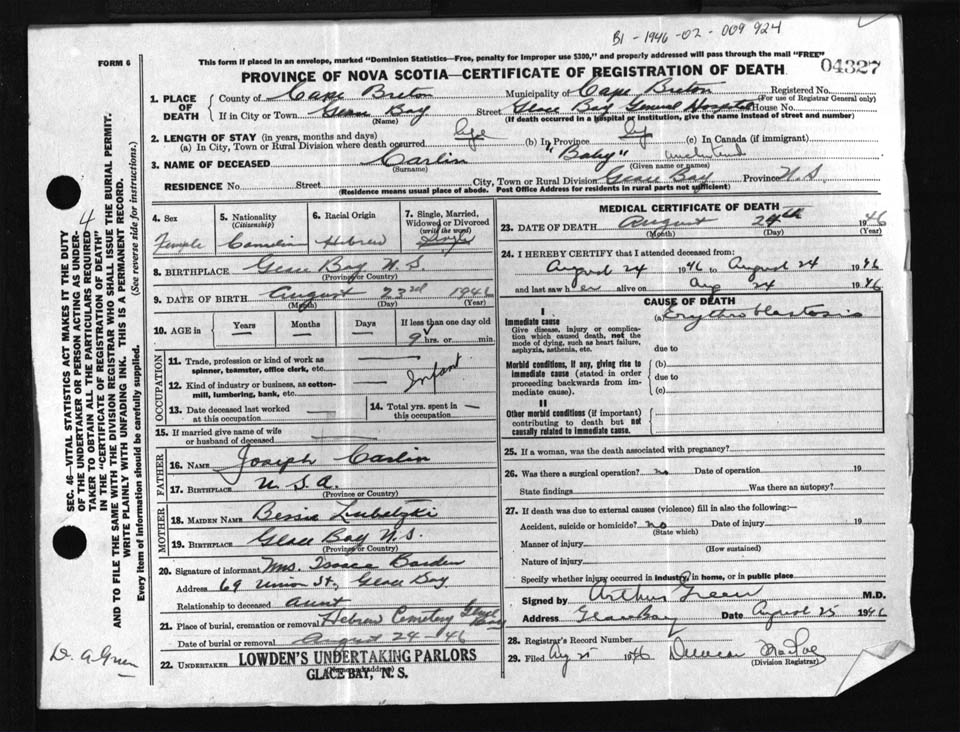 B1 - 1946 - 02 - 009 924
FORM 6
This form if placed in an envelope, marked "Dominion Statistics—Free, penalty for improper use $300," and properly addressed will pass through the mail "FREE"
PROVINCE OF NOVA SCOTIA—CERTIFICATE OF REGISTRATION OF DEATH
04327
1. PLACE OF DEATH
County of Cape Breton Municipality of Cape Breton Registered No.
(For use of Registrar General only)
If in City or Town Glace Bay Street Glace Bay General Hospital House No.
(Name) (If death occurred in a hospital or institution, give the name instead of street and number)
2. LENGTH OF STAY (in years, months and days)
(a) In City, Town or Rural Division where death occurred life (b) In Province (c) In Canada (if immigrant)
3. NAME OF DECEASED Carlin "Baby"
(Surname) (Given name or names)
RESIDENCE No. Street City, Town or Rural Division Glace Bay Province N.S.
(Residence means usual place of abode. Post Office Address for residents in rural parts not sufficient)
4. Sex
Female
5. Nationality
(Citizenship)
Canadian
6. Racial Origin
Hebrew
7. Single, Married, Widowed or Divorced
(write the word)
Single
8. BIRTHPLACE Glace Bay N.S.
(Province or Country)
9. DATE OF BIRTH August 23rd 1946
(Month) (Day) (Year)
10. AGE in
Years Months Days If less than one day old
9 hrs. or min.
OCCUPATION
11. Trade, profession or kind of work as spinner, teamster, office clerk, etc.
12. Kind of industry or business, as cotton-mill, lumbering, bank, etc.
Infant
13. Date deceased last worked at this occupation
14. Total yrs. spent in this occupation
15. If married give name of wife or husband of deceased
FATHER
16. NAME Joseph Carlin
17. BIRTHPLACE U.S.A.
(Province or Country)
MOTHER
18. MAIDEN NAME Bessie Lubetzki
19. BIRTHPLACE Glace Bay N.S.
(Province or Country)
20. Signature of informant Mrs. Isaac
Address 69 Union St, Glace Bay
Relationship to deceased aunt
21. Place of burial, cremation or removal Hebrew Cemetery Glace Bay
Date of burial or removal August 24 - 46
22. UNDERTAKER LOWDEN'S UNDERTAKING PARLORS
(Name and address)
GLACE BAY, N. S.
MEDICAL CERTIFICATE OF DEATH
23. DATE OF DEATH August 24th 1946
(Month) (Day) (Year)
24. I HEREBY CERTIFY that I attended deceased from:
August 24 1946 to August 24 1946
and last saw her alive on Aug 24 1946
CAUSE OF DEATH
I
Immediate cause
Give disease, injury or complication which caused death, not the mode of dying, such as heart failure, asphyxia, asthenia, etc.
(a) Erythroblastosis
due to
Morbid conditions, if any, giving rise to immediate cause (stated in order proceeding backwards from immediate cause).
(b)
due to
(c)
II
Other morbid conditions (if important) contributing to death but not causally related to immediate cause.
25. If a woman, was the death associated with pregnancy?
26. Was there a surgical operation? no Date of operation 19
State findings Was there an autopsy?
27. If death was due to external causes (violence) fill in also the following:—
Accident, suicide or homicide? no Date of injury 19
(State which)
Manner of injury
(How sustained)
Nature of injury
Specify whether injury occurred in industry, in home, or in public place
Signed by Arthur Green M.D.
Address Glace Bay Date August 25 1946
28. Registrar's Record Number
29. Filed Aug 25 1946 Duncan
(Division Registrar)
SEC. 46—VITAL STATISTICS ACT MAKES IT THE DUTY
OF THE UNDERTAKER OR PERSON ACTING AS UNDER-
TAKER TO OBTAIN ALL THE PARTICULARS REQUIRED
IN THE "CERTIFICATE OF REGISTRATION OF DEATH"
AND TO FILE THE SAME WITH THE DIVISION REGISTRAR WHO SHALL ISSUE THE BURIAL PERMIT.
WRITE PLAINLY WITH UNFADING INK. THIS IS A PERMANENT RECORD.
Every item of information should be carefully supplied. (See reverse side for instructions.)
4
Dr. A Green